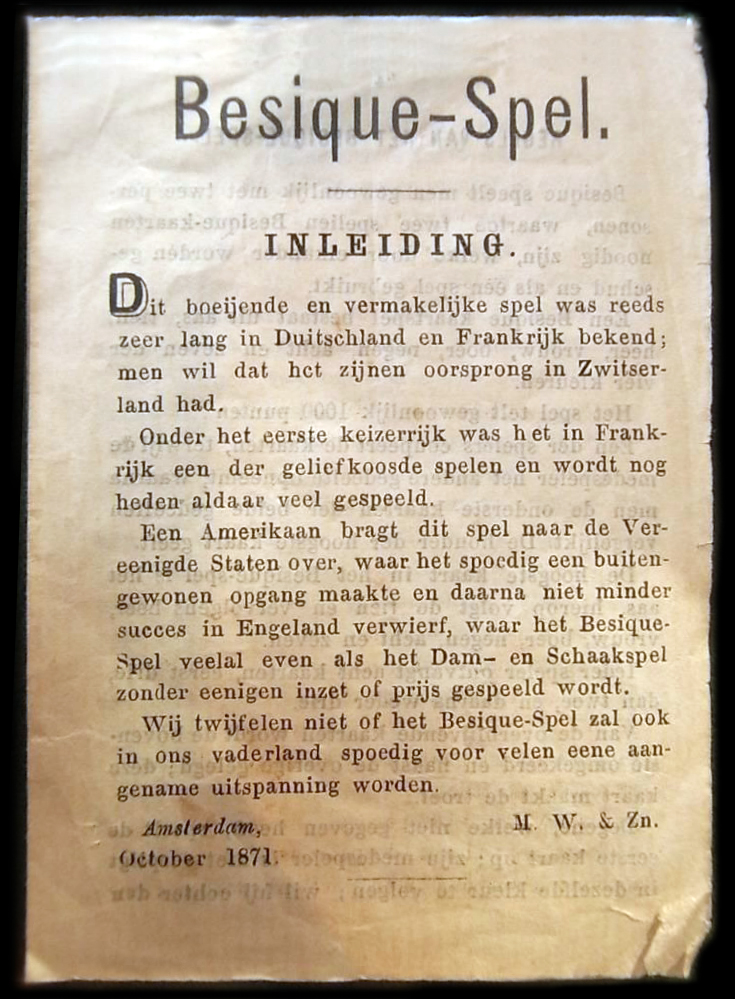 Besique-Spel.
INLEIDING.
Dit boeijende en vermakelijke spel was reeds
zeer lang in Duitschland en Frankrijk bekend;
men wil dat het zijnen oorsprong in Zwitser-
land had.
Onder het eerste keizerrijk was het in Frank-
rijk een der geliefkoosde spelen en wordt nog
heden aldaar veel gespeeld.
Een Amerikaan bragt dit spel naar de Ver-
eenigde Staten over, waar het spoedig een buiten-
gewonen opgang maakte en daarna niet minder
succes in Engeland verwierf, waar het Besique-
Spel veelal even als het Dam- en Schaakspel
zonder eenigen inzet of prijs gespeeld wordt.
Wij twijfelen niet of het Besique-Spel zal ook
in ons vaderland spoedig voor velen eene aan-
gename uitspanning worden.
Amsterdam, M. W. & Zn.
October 1871.